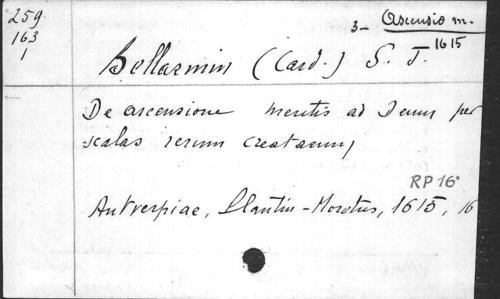 259
163
1
3- Ascensio m.
1615
Bellarmin (Card.) S. J.
De ascensione mentis ad Deum per
scalas rerum creatarum,
RP 16°
Antverpiae, Plantin-Moretus, 1615, 16